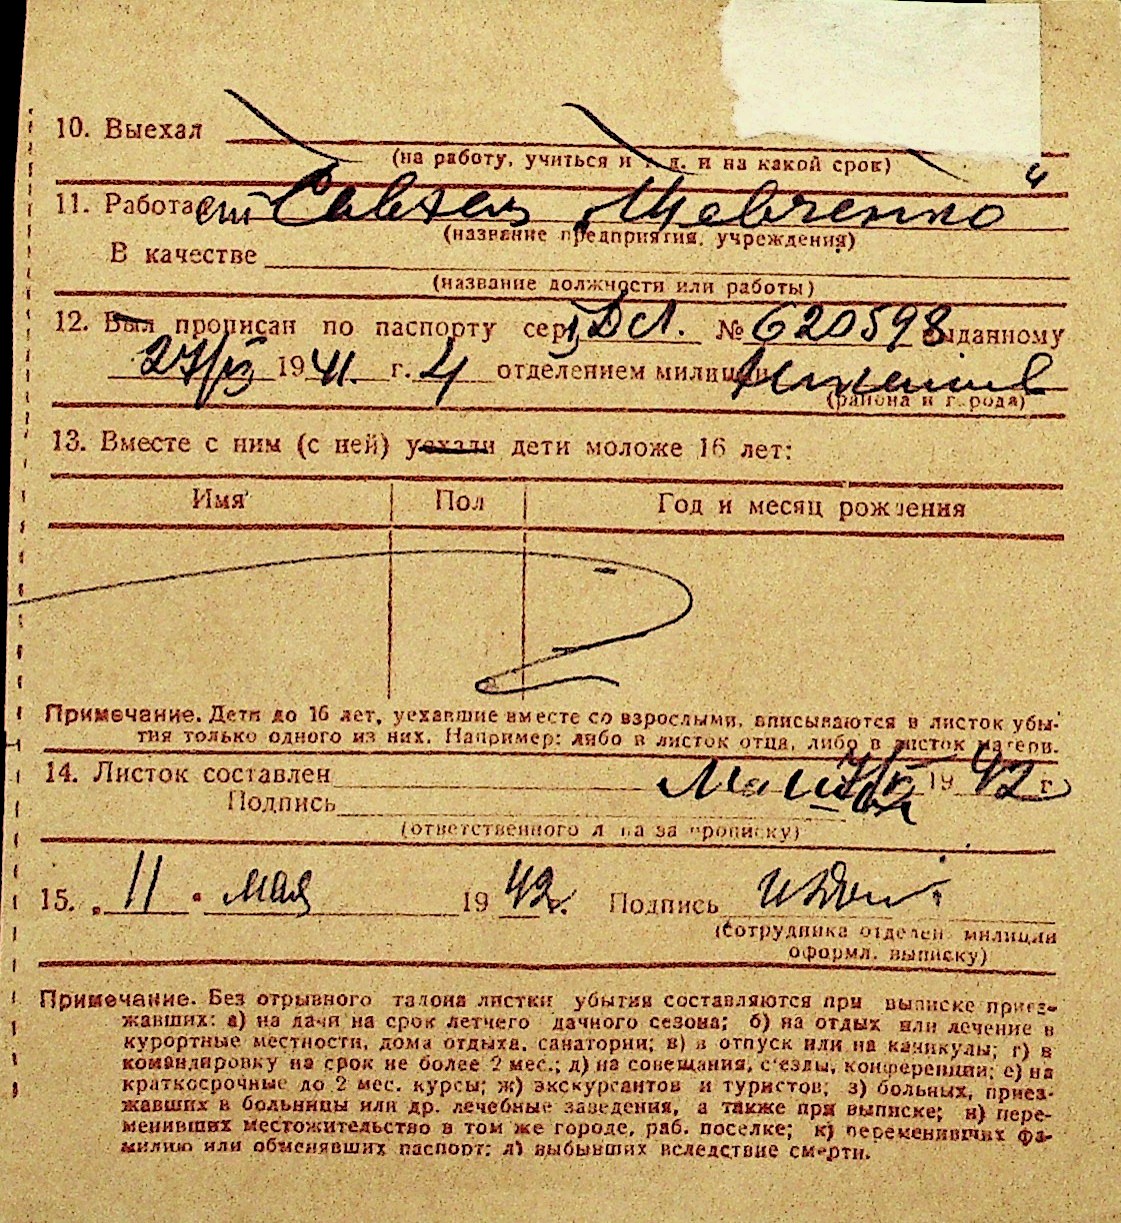 10. Выехал
(на работу, учиться и т. д. и на какой срок)
11. Работает Совхоз „Шевченко“
(название предприятия, учреждения)
В качестве
(название должности или работы)
12. Был прописан по паспорту серии № 620598 выданному
27/ 1941 г. 4 отделением милиции
(района и города)
13. Вместе с ним (с ней) уехали дети моложе 16 лет:
Имя Пол Год и месяц рождения
Примечание. Дети до 16 лет, уехавшие вместе со взрослыми, вписываются в листок убы-
тия только одного из них. Например: либо в листок отца, либо в листок матери.
14. Листок составлен 1942 г.
Подпись
(ответственного лица за прописку)
15. „11“ мая 1942 г. Подпись
(сотрудника отделен. милиции
оформл. выписку)
Примечание. Без отрывного талона листки убытия составляются при выписке приез-
жавших: а) на дачи на срок летнего дачного сезона; б) на отдых или лечение в
курортные местности, дома отдыха, санатории; в) в отпуск или на каникулы; г) в
командировку на срок не более 2 мес.; д) на совещания, съезды, конференции; е) на
краткосрочные до 2 мес. курсы; ж) экскурсантов и туристов; з) больных, приез-
жавших в больницы или др. лечебные заведения, а также при выписке; и) пере-
менивших местожительство в том же городе, раб. поселке; к) переменивших фа-
милию или обменявших паспорт; л) выбывших вследствие смерти.